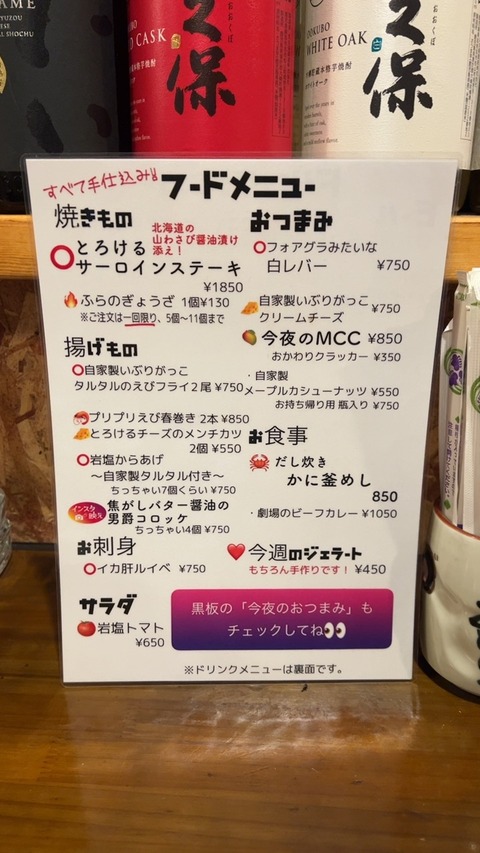 AME
YUZOU
SHOCHU
おおくぼ
OOKUBO
CASK
久保
おおくぼ
OOKUBO
WHITE OAK
久保
すべて手仕込み!!
フードメニュー
焼きもの
北海道の
山わさび醤油漬け
添え!
⭕とろける
サーロインステーキ
¥1850
🔥ふらのぎょうざ 1個¥130
※ご注文は一回限り、5個〜11個まで
揚げもの
⭕自家製いぶりがっこ
タルタルのえびフライ2尾 ¥750
プリプリえび春巻き 2本¥850
🧀とろけるチーズのメンチカツ
2個 ¥550
⭕岩塩からあげ
〜自家製タルタル付き〜
ちっちゃい7個くらい ¥750
焦がしバター醤油の
男爵コロッケ
ちっちゃい4個 ¥750
お刺身
⭕イカ肝ルイベ ¥750
サラダ
🍅岩塩トマト
¥650
おつまみ
⭕フォアグラみたいな
白レバー ¥750
🧀自家製いぶりがっこ
クリームチーズ ¥750
🥭今夜のMCC ¥850
おかわりクラッカー ¥350
・自家製
メープルカシューナッツ ¥550
お持ち帰り用 瓶入り ¥750
お食事
🦀だし炊き
かに釜めし
850
・劇場のビーフカレー ¥1050
❤️今週のジェラート
もちろん手作りです! ¥450
黒板の「今夜のおつまみ」も
チェックしてね👀
※ドリンクメニューは裏面です。